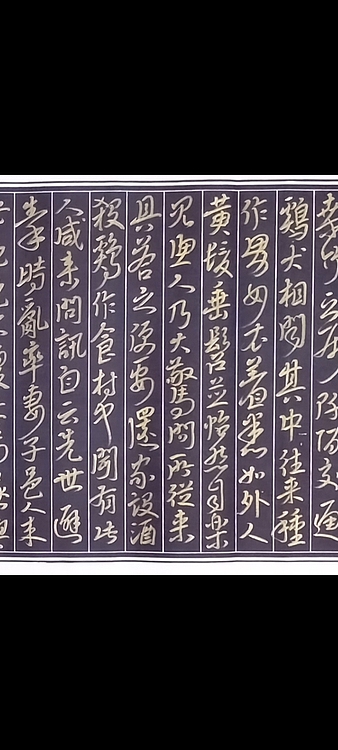 竹之屬阡陌交通
鷄犬相聞其中往来種
作男女衣着悉如外人
黄髮垂髫並怡然自樂
見漁人乃大驚問所從来
具答之便要還家設酒
殺鷄作食村中聞有此
人咸来問訊自云先世避
秦時亂率妻子邑人来